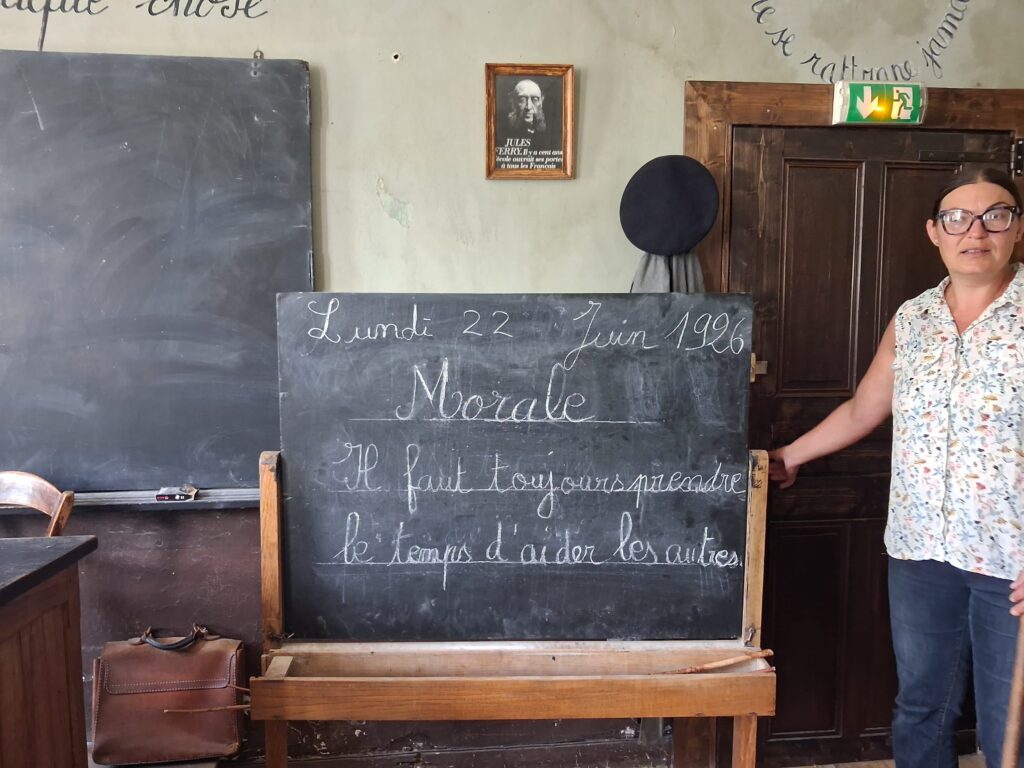 chose
se rattrape jamais
JULES
FERRY. Il y a cent ans
école ouvrait ses portes
à tous les Français
Lundi 22 Juin 1926
Morale
Il faut toujours prendre
le temps d'aider les autres.